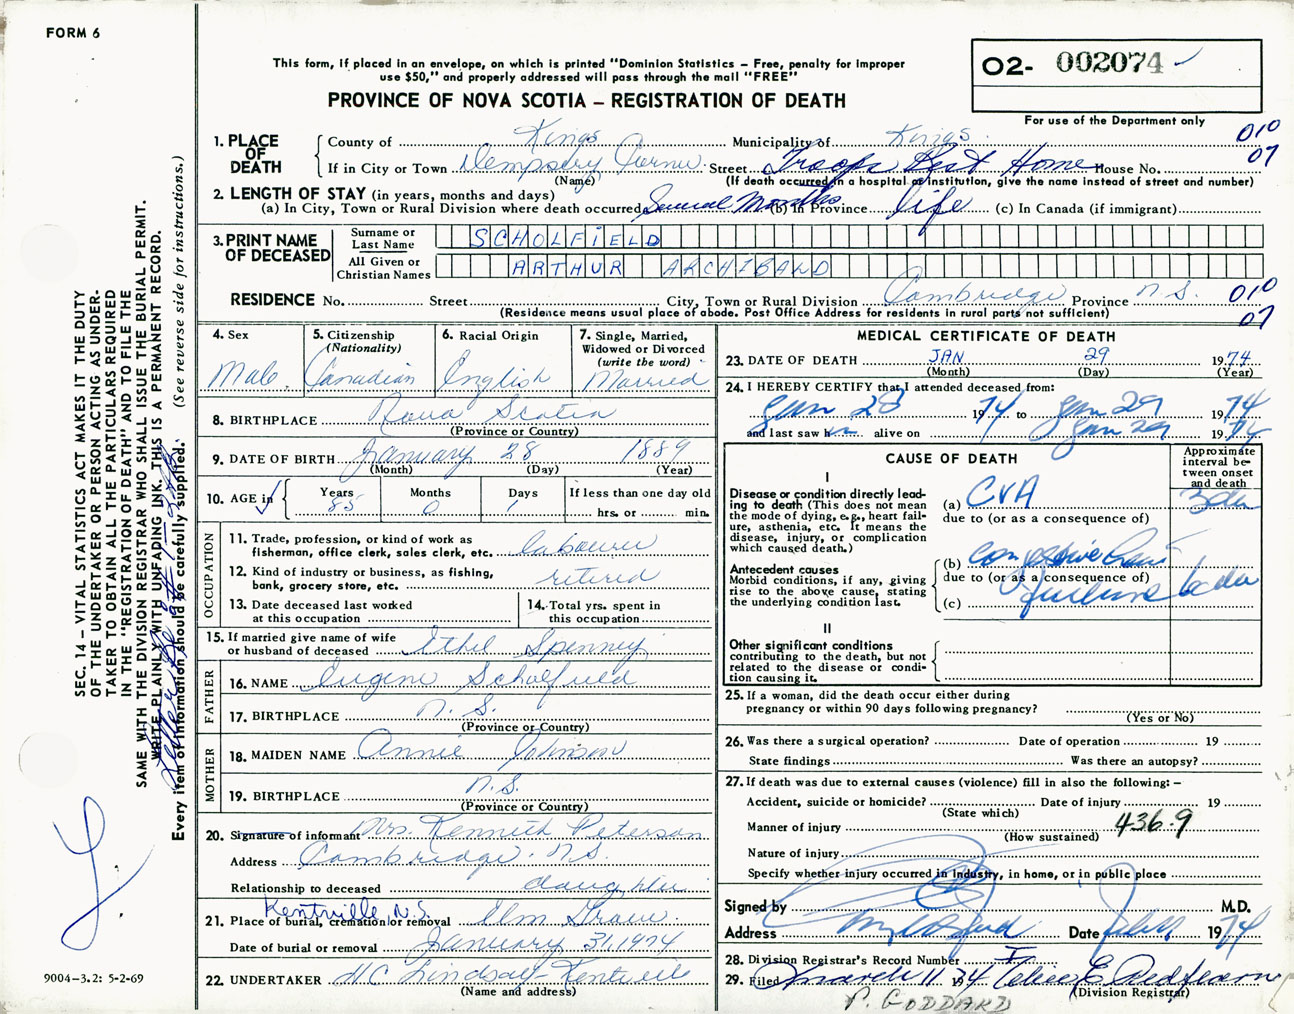 FORM 6
This form, if placed in an envelope, on which is printed "Dominion Statistics – Free, penalty for improper
use $50," and properly addressed will pass through the mail "FREE"
PROVINCE OF NOVA SCOTIA – REGISTRATION OF DEATH
O2- 002074
For use of the Department only
010
07
1. PLACE OF DEATH
County of Kings Municipality of Kings
If in City or Town Dempsey Corner Street Troops Rest Home House No.
(Name) (If death occurred in a hospital or institution, give the name instead of street and number)
2. LENGTH OF STAY (in years, months and days)
(a) In City, Town or Rural Division where death occurred Several Months (b) In Province life (c) In Canada (if immigrant)
3. PRINT NAME OF DECEASED
Surname or Last Name SCHOLFIELD
All Given or Christian Names ARTHUR ARCHIBALD
RESIDENCE No. Street City, Town or Rural Division Cambridge Province N.S. 010
(Residence means usual place of abode. Post Office Address for residents in rural parts not sufficient) 07
4. Sex
Male
5. Citizenship (Nationality)
Canadian
6. Racial Origin
English
7. Single, Married, Widowed or Divorced (write the word)
Married
8. BIRTHPLACE Nova Scotia
(Province or Country)
9. DATE OF BIRTH January 28 1889
(Month) (Day) (Year)
10. AGE in Years Months Days If less than one day old
85 0 1 hrs. or min.
OCCUPATION
11. Trade, profession, or kind of work as
fisherman, office clerk, sales clerk, etc. labourer
12. Kind of industry or business, as fishing,
bank, grocery store, etc. retired
13. Date deceased last worked
at this occupation
14. Total yrs. spent in
this occupation
15. If married give name of wife
or husband of deceased Ethel Spenney
FATHER
16. NAME Eugene Scholfield
17. BIRTHPLACE N.S.
(Province or Country)
MOTHER
18. MAIDEN NAME Annie Johnson
19. BIRTHPLACE N.S.
(Province or Country)
20. Signature of informant Mrs. Kenneth Peterson
Address Cambridge. N.S.
Relationship to deceased daughter
Kentville, N.S.
21. Place of burial, cremation or removal Elm Grove
Date of burial or removal January 31, 1974
22. UNDERTAKER H C Lindsay Kentville
(Name and address)
MEDICAL CERTIFICATE OF DEATH
23. DATE OF DEATH JAN 29 1974
(Month) (Day) (Year)
24. I HEREBY CERTIFY that I attended deceased from:
Jan 28 1974 to Jan 29 1974
and last saw him alive on Jan 29 1974
CAUSE OF DEATH
Approximate interval between onset and death
I
Disease or condition directly lead-
ing to death (This does not mean
the mode of dying, e.g., heart fail-
ure, asthenia, etc. It means the
disease, injury, or complication
which caused death.)
(a) CVA
due to (or as a consequence of)
Antecedent causes
Morbid conditions, if any, giving
rise to the above cause, stating
the underlying condition last.
(b) Congestive Heart
due to (or as a consequence of)
(c) Failure
II
Other significant conditions
contributing to the death, but not
related to the disease or condi-
tion causing it.
25. If a woman, did the death occur either during
pregnancy or within 90 days following pregnancy?
(Yes or No)
26. Was there a surgical operation? Date of operation 19
State findings Was there an autopsy?
27. If death was due to external causes (violence) fill in also the following: –
Accident, suicide or homicide? Date of injury 19
(State which)
Manner of injury 436.9
(How sustained)
Nature of injury
Specify whether injury occurred in Industry, in home, or in public place
Signed by M.D.
Address Date 1974
28. Division Registrar's Record Number
29. Filed March 11 1974
(Division Registrar)
P. GODDARD
SEC. 14 – VITAL STATISTICS ACT MAKES IT THE DUTY
OF THE UNDERTAKER OR PERSON ACTING AS UNDER-
TAKER TO OBTAIN ALL THE PARTICULARS REQUIRED
IN THE "REGISTRATION OF DEATH" AND TO FILE THE
SAME WITH THE DIVISION REGISTRAR WHO SHALL ISSUE THE BURIAL PERMIT.
WRITE PLAINLY WITH UNFADING INK. THIS IS A PERMANENT RECORD.
Every item of information should be carefully supplied. (See reverse side for instructions.)
9004–3.2: 5-2-69